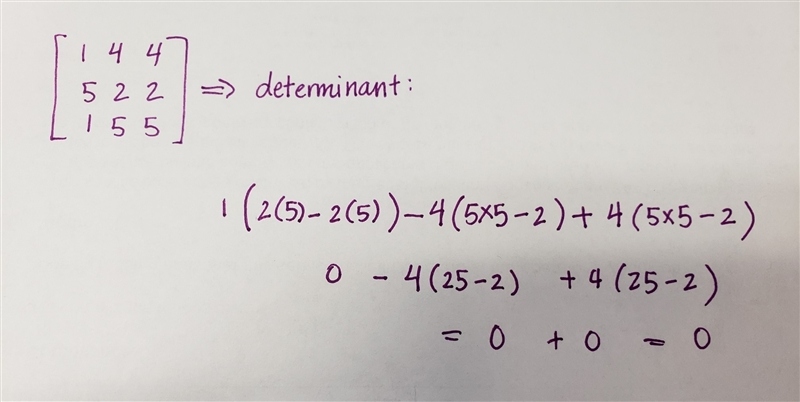 [1 4 4
5 2 2 ⇒ determinant:
1 5 5]
1 (2(5) - 2(5)) - 4 (5×5 - 2) + 4 (5×5 - 2)
0 - 4 (25 - 2) + 4 (25 - 2)
= 0 + 0 = 0